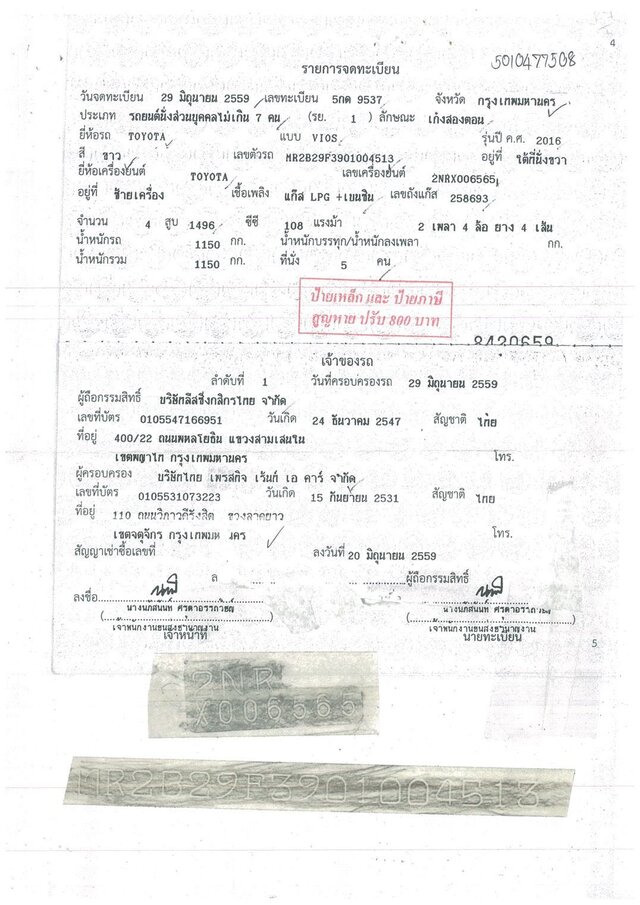 4
5010477508
รายการจดทะเบียน
วันจดทะเบียน 29 มิถุนายน 2559 เลขทะเบียน 5กด 9537 จังหวัด กรุงเทพมหานคร
ประเภท รถยนต์นั่งส่วนบุคคลไม่เกิน 7 คน (รย. 1 ) ลักษณะ เก๋งสองตอน
ยี่ห้อรถ TOYOTA แบบ VIOS รุ่นปี ค.ศ. 2016
สี ขาว เลขตัวรถ MR2B29F3901004513 อยู่ที่ ใต้ที่นั่งขวา
ยี่ห้อเครื่องยนต์ TOYOTA เลขเครื่องยนต์ 2NRX006565
อยู่ที่ ซ้ายเครื่อง เชื้อเพลิง แก๊ส LPG +เบนซิน เลขถังแก๊ส 258693
จำนวน 4 สูบ 1496 ซีซี 108 แรงม้า 2 เพลา 4 ล้อ ยาง 4 เส้น
น้ำหนักรถ 1150 กก. น้ำหนักบรรทุก/น้ำหนักลงเพลา กก.
น้ำหนักรวม 1150 กก. ที่นั่ง 5 คน
ป้ายเหล็ก และ ป้ายภาษี
สูญหาย ปรับ 800 บาท
8420659
เจ้าของรถ
ลำดับที่ 1 วันที่ครอบครองรถ 29 มิถุนายน 2559
ผู้ถือกรรมสิทธิ์ บริษัทลีสซิ่งกสิกรไทย จำกัด
เลขที่บัตร 0105547166951 วันเกิด 24 ธันวาคม 2547 สัญชาติ ไทย
ที่อยู่ 400/22 ถนนพหลโยธิน แขวงสามเสนใน
เขตพญาไท กรุงเทพมหานคร โทร.
ผู้ครอบครอง บริษัทไทย เพรสทิจ เร้นท์ เอ คาร์ จำกัด
เลขที่บัตร 0105531073223 วันเกิด 15 กันยายน 2531 สัญชาติ ไทย
ที่อยู่ 110 ถนนวิภาวดีรังสิต ขวงลาดยาว
เขตจตุจักร กรุงเทพมห นคร โทร.
สัญญาเช่าซื้อเลขที่ ลงวันที่ 20 มิถุนายน 2559
ล ผู้ถือกรรมสิทธิ์
ลงชื่อ
เจ้าพนักงานขนส่งชำนาญงาน เจ้าพนักงานขนส่งชำนาญงาน
เจ้าหน้าที่ นายทะเบียน
5
2NR
X006565
MR2B29F3901004513